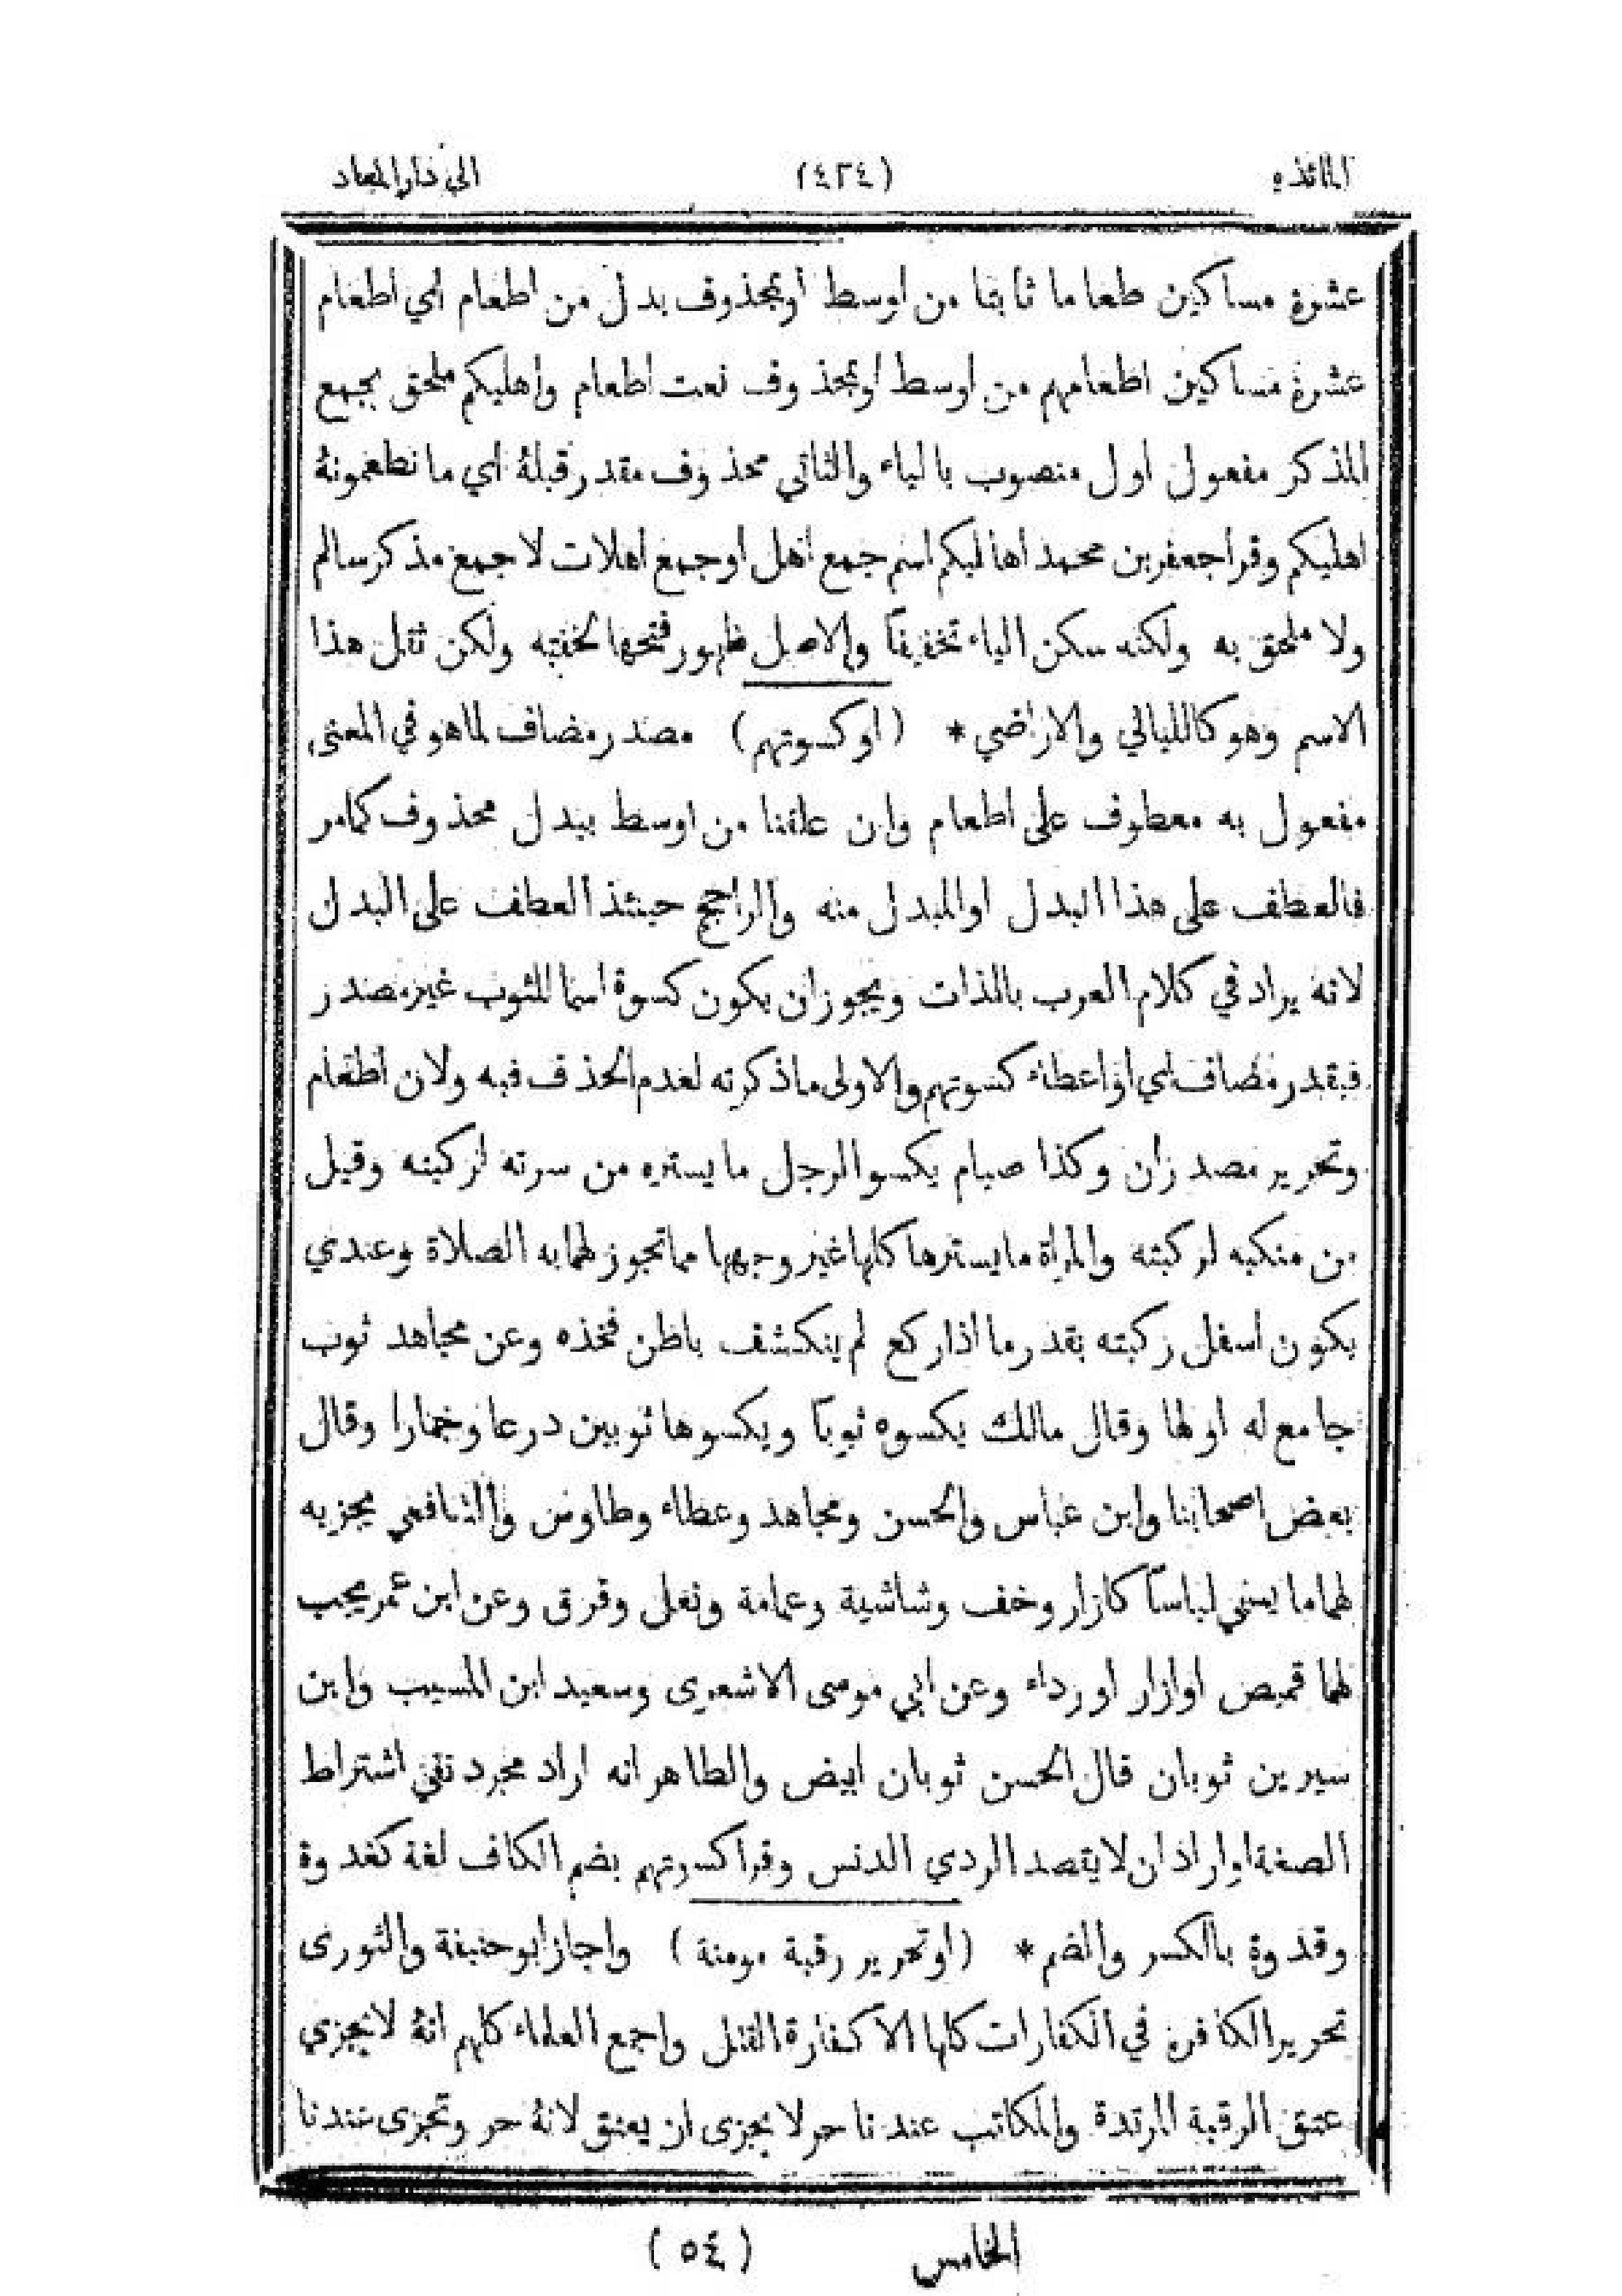 المائده (٤٢٤) الى دار المعاد
عشرة مساكين طعاما ثابتا من اوسط او بمحذوف بدل من اطعام اي اطعام
عشرة مساكين اطعامهم من اوسط او بمحذوف نعت اطعام واهليكم ملحق بجمع
المذكر مفعول اول منصوب بالياء والثاني محذوف مقدر قبله اي ما تطعمونه
اهليكم وقرا جعفر بن محمد اهاليكم اسم جمع اهل او جمع اهلات لا جمع مذكر سالم
ولا ملحق به ولكنه سكن الياء تخفيفاً والاصل ظهور فتحها لخفته ولكن ثقل هذا
الاسم وهو كالليالي والاراضي * (او كسوتهم) مصدر مضاف لما هو في المعنى
مفعول به معطوف على اطعام وان علقنا من اوسط ببدل محذوف كما مر
فالعطف على هذا البدل او المبدل منه والراجح حينئذ العطف على البدل
لانه يراد في كلام العرب بالذات ويجوز ان يكون كسوة اسما للثوب غير مصدر
فيقدر مضاف اي او اعطاء كسوتهم والاولى ما ذكرته لعدم الحذف فيه ولان اطعام
وتحرير مصدران وكذا صيام يكسو الرجل ما يستره من سرته لركبته وقيل
من منكبه لركبته والمراة ما يسترها كلها غير وجهها مما تجوز لهما به الصلاة وعندي
يكون اسفل ركبته بقدر ما اذا ركع لم ينكشف باطن فخذه وعن مجاهد ثوب
جامع له او لها وقال مالك يكسوه ثوباً ويكسوها ثوبين درعا وخمارا وقال
بعض اصحابنا وابن عباس والحسن ومجاهد وعطاء وطاوس والشافعي يجزيه
لهما ما يسمى لباساً كازار وخف وشاشية وعمامة ونعل وقرق وعن ابن عمر يجب
لهما قميص او ازار او رداء وعن ابي موسى الاشعرى وسعيد ابن المسيب وابن
سيرين ثوبان قال الحسن ثوبان ابيض والطاهر انه اراد مجرد نفي اشتراط
الصغة او اراد ان لا يقصد الردي الدنس وقرا كسوتهم بضم الكاف لغة كغدوة
وقدوة بالكسر والضم * (او تحرير رقبة مومنة) واجاز ابو حنيفة والثورى
تحرير الكافرة في الكفارات كلها الا كفارة القتل واجمع العلماء كلهم انه لا يجزي
عتق الرقبة المرتدة والمكاتب عندنا حر لا يجزى ان يعتق لانه حر وتجزى عندنا
الخامس (٥٤)